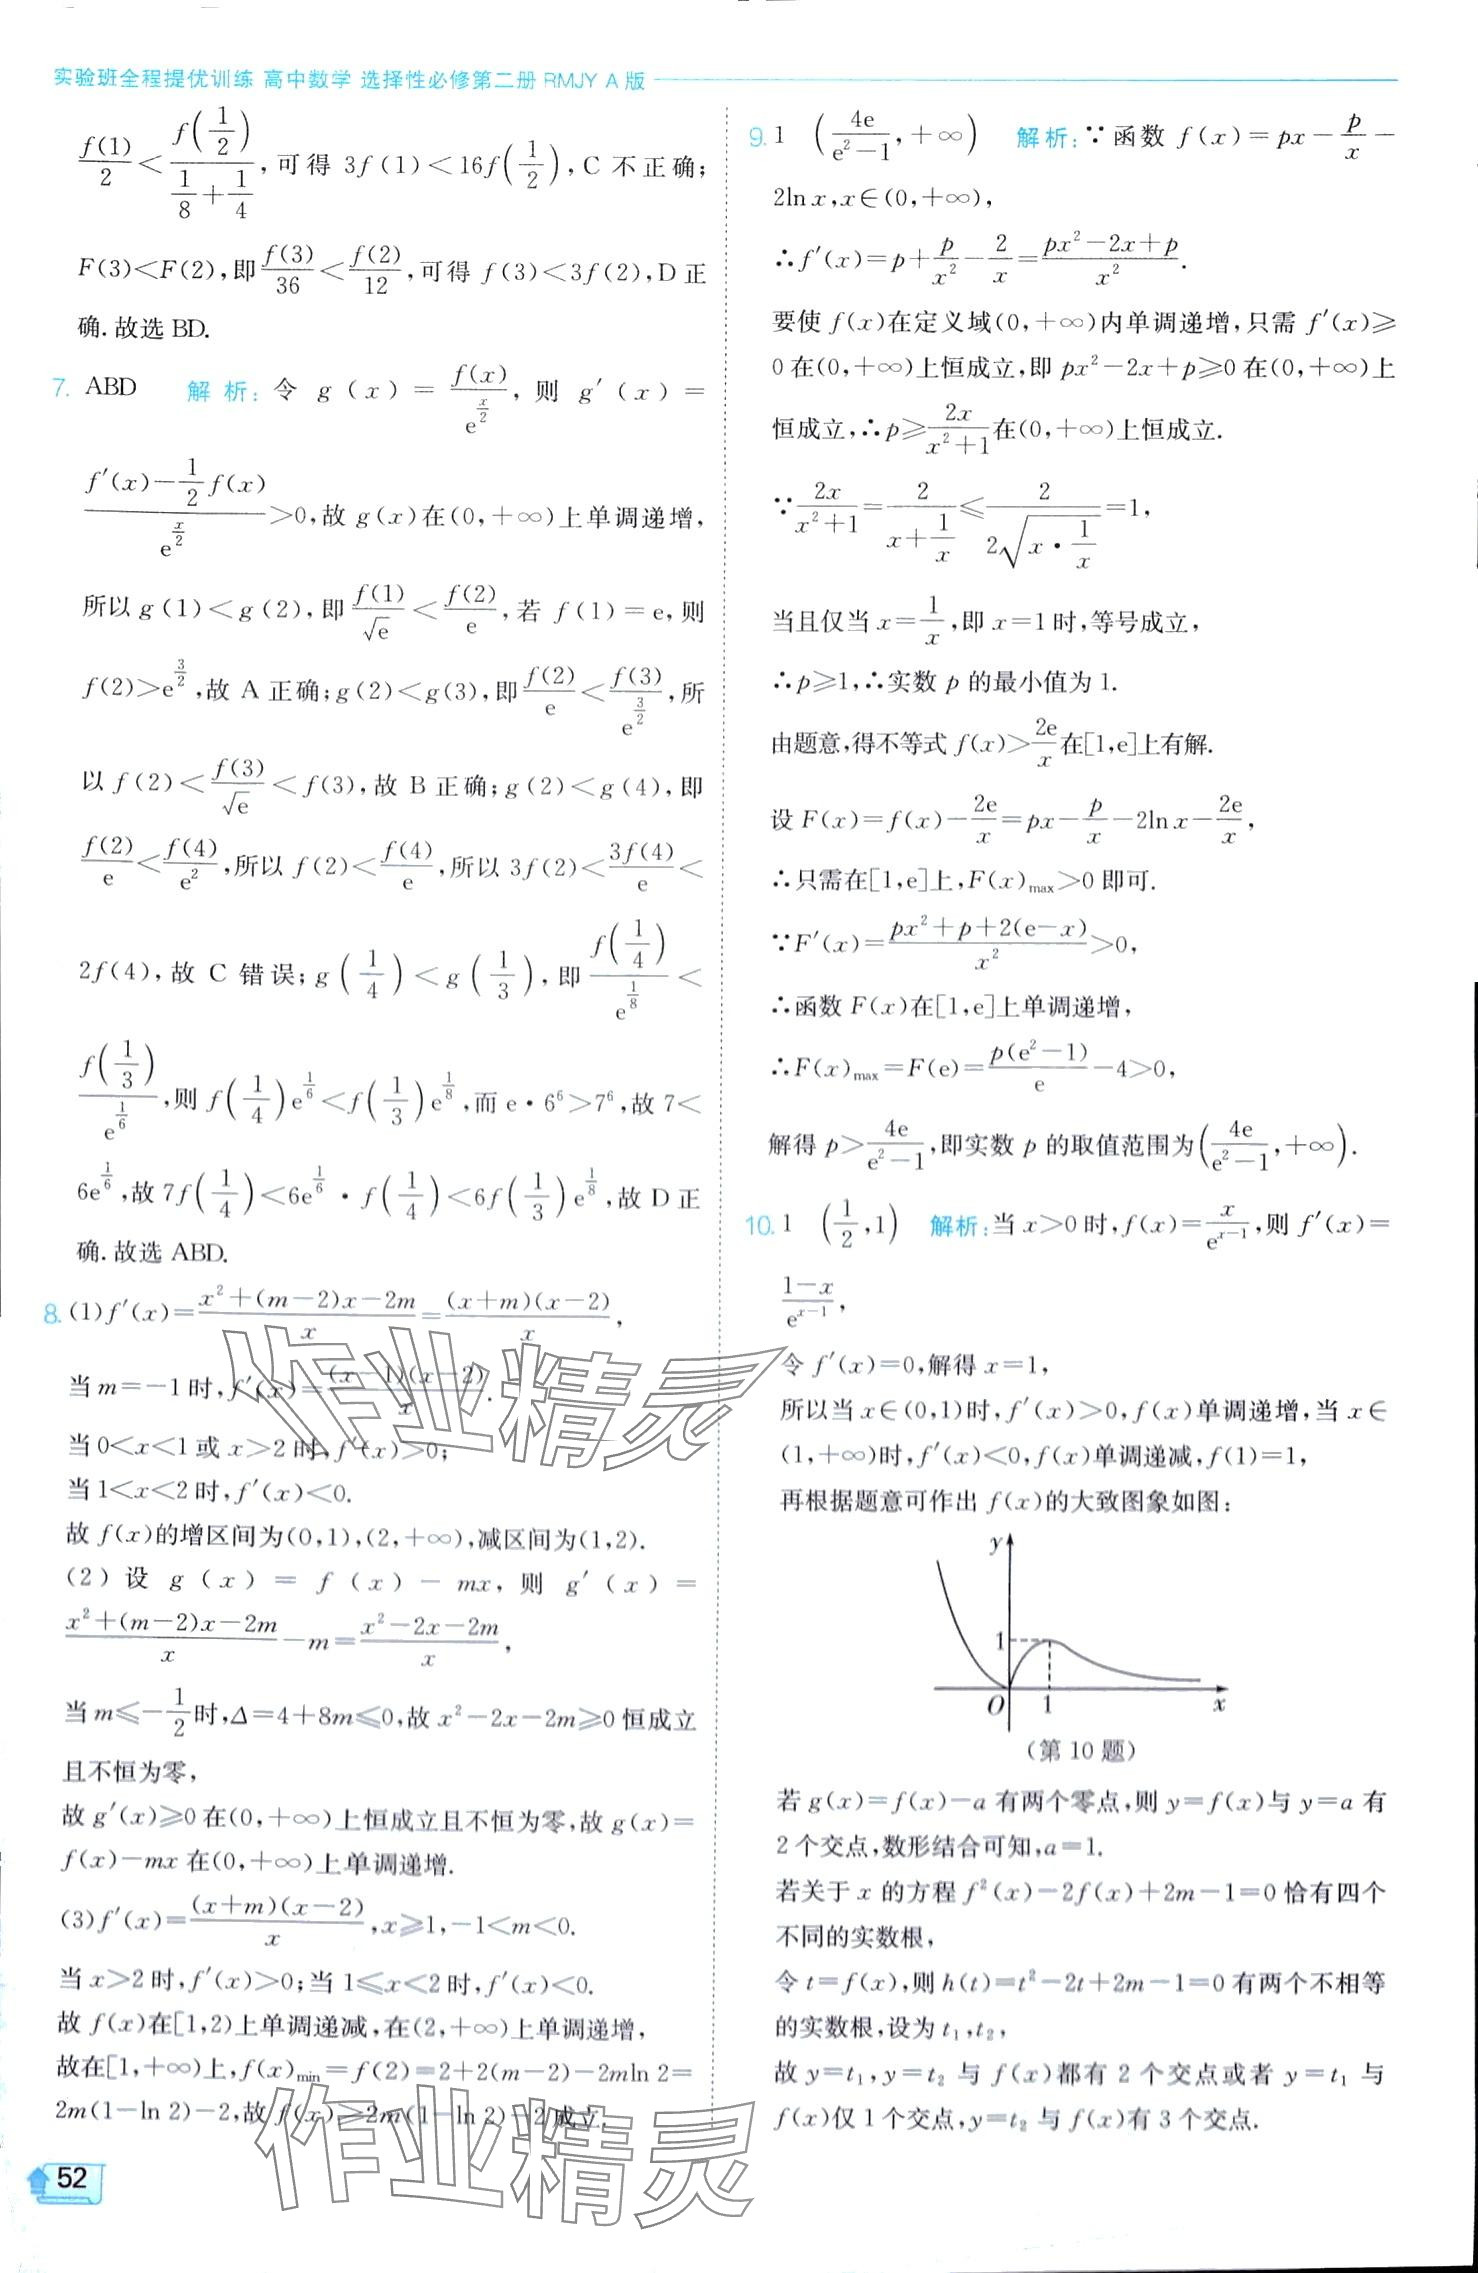 实验班全程提优训练 高中数学 选择性必修第二册 RMJY A 版
f(1)/2 < f(1/2)/(1/8+1/4), 可得 3f(1)<16f(1/2), C 不正确;
F(3)<F(2), 即 f(3)/36 < f(2)/12, 可得 f(3)<3f(2), D 正
确. 故选 BD.
7. ABD 解析: 令 g(x) = f(x)/e^(x/2), 则 g′(x) =
(f′(x)−1/2 f(x))/e^(x/2) >0, 故 g(x)在(0,+∞)上单调递增,
所以 g(1)<g(2), 即 f(1)/√e < f(2)/e, 若 f(1)=e, 则
f(2)>e^(3/2), 故 A 正确; g(2)<g(3), 即 f(2)/e < f(3)/e^(3/2), 所
以 f(2)< f(3)/√e <f(3), 故 B 正确; g(2)<g(4), 即
f(2)/e < f(4)/e², 所以 f(2)< f(4)/e, 所以 3f(2)< 3f(4)/e <
2f(4), 故 C 错误; g(1/4)<g(1/3), 即 f(1/4)/e^(1/8) <
f(1/3)/e^(1/6), 则 f(1/4)e^(1/6)<f(1/3)e^(1/8), 而 e·6⁶>7⁶, 故 7<
6e^(1/6), 故 7f(1/4)<6e^(1/6)·f(1/4)<6f(1/3)e^(1/8), 故 D 正
确. 故选 ABD.
8. (1) f′(x)= (x²+(m−2)x−2m)/x = (x+m)(x−2)/x,
当 m=−1 时, f′(x)= (x−1)(x−2)/x.
当 0<x<1 或 x>2 时, f′(x)>0;
当 1<x<2 时, f′(x)<0.
故 f(x)的增区间为(0,1),(2,+∞), 减区间为(1,2).
(2) 设 g(x) = f(x)−mx, 则 g′(x) =
(x²+(m−2)x−2m)/x −m= (x²−2x−2m)/x,
当 m≤−1/2 时, Δ=4+8m≤0, 故 x²−2x−2m≥0 恒成立
且不恒为零,
故 g′(x)≥0 在(0,+∞)上恒成立且不恒为零, 故 g(x)=
f(x)−mx 在(0,+∞)上单调递增.
(3) f′(x)= (x+m)(x−2)/x, x≥1, −1<m<0.
当 x>2 时, f′(x)>0; 当 1≤x<2 时, f′(x)<0.
故 f(x)在[1,2)上单调递减, 在(2,+∞)上单调递增,
故在[1,+∞)上, f(x)min=f(2)=2+2(m−2)−2mln 2=
2m(1−ln 2)−2, 故 f(x)≥2m(1−ln 2)−2 成立.
52
9. 1 (4e/(e²−1), +∞) 解析: ∵函数 f(x)=px− p/x −
2ln x, x∈(0,+∞),
∴f′(x)=p+ p/x² − 2/x = (px²−2x+p)/x².
要使 f(x)在定义域(0,+∞)内单调递增, 只需 f′(x)≥
0 在(0,+∞)上恒成立, 即 px²−2x+p≥0 在(0,+∞)上
恒成立, ∴p≥ 2x/(x²+1) 在(0,+∞)上恒成立.
∵ 2x/(x²+1) = 2/(x+1/x) ≤ 2/(2√(x·1/x)) =1,
当且仅当 x= 1/x, 即 x=1 时, 等号成立,
∴p≥1, ∴实数 p 的最小值为 1.
由题意, 得不等式 f(x)> 2e/x 在[1,e]上有解.
设 F(x)=f(x)− 2e/x =px− p/x −2ln x− 2e/x,
∴只需在[1,e]上, F(x)max>0 即可.
∵F′(x)= (px²+p+2(e−x))/x² >0,
∴函数 F(x)在[1,e]上单调递增,
∴F(x)max=F(e)= p(e²−1)/e −4>0,
解得 p> 4e/(e²−1), 即实数 p 的取值范围为(4e/(e²−1), +∞).
10. 1 (1/2, 1) 解析: 当 x>0 时, f(x)= x/e^(x−1), 则 f′(x)=
(1−x)/e^(x−1),
令 f′(x)=0, 解得 x=1,
所以当 x∈(0,1)时, f′(x)>0, f(x)单调递增, 当 x∈
(1,+∞)时, f′(x)<0, f(x)单调递减, f(1)=1,
再根据题意可作出 f(x)的大致图象如图:
y
1
O 1 x
(第 10 题)
若 g(x)=f(x)−a 有两个零点, 则 y=f(x)与 y=a 有
2 个交点, 数形结合可知, a=1.
若关于 x 的方程 f²(x)−2f(x)+2m−1=0 恰有四个
不同的实数根,
令 t=f(x), 则 h(t)=t²−2t+2m−1=0 有两个不相等
的实数根, 设为 t₁, t₂,
故 y=t₁, y=t₂ 与 f(x)都有 2 个交点或者 y=t₁ 与
f(x)仅 1 个交点, y=t₂ 与 f(x)有 3 个交点.
作业精灵
作业精灵